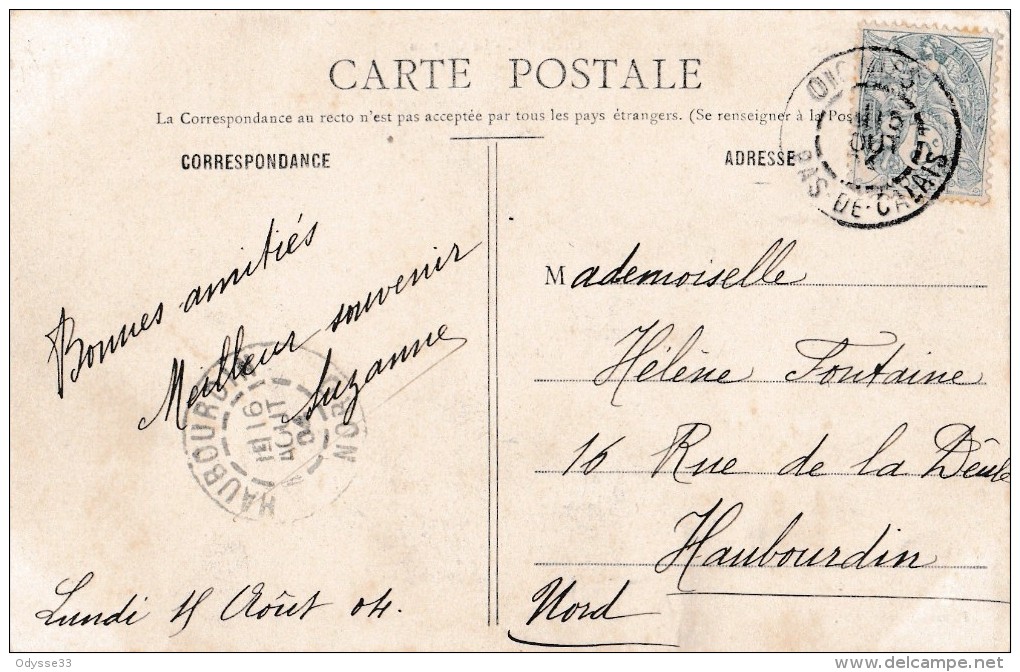 CARTE POSTALE
La Correspondance au recto n'est pas acceptée par tous les pays étrangers. (Se renseigner à la Pos
CORRESPONDANCE
ADRESSE
PAS-DE-CALAIS
Bonnes amitiés
Meilleur souvenir
Suzanne
HAUBOURDIN
NORD
16
AOUT
04
Lundi 15 Août 04.
Mademoiselle
Hélène Fontaine
16 Rue de la Deûle
Haubourdin
Nord
Odysse33
www.delcampe.net